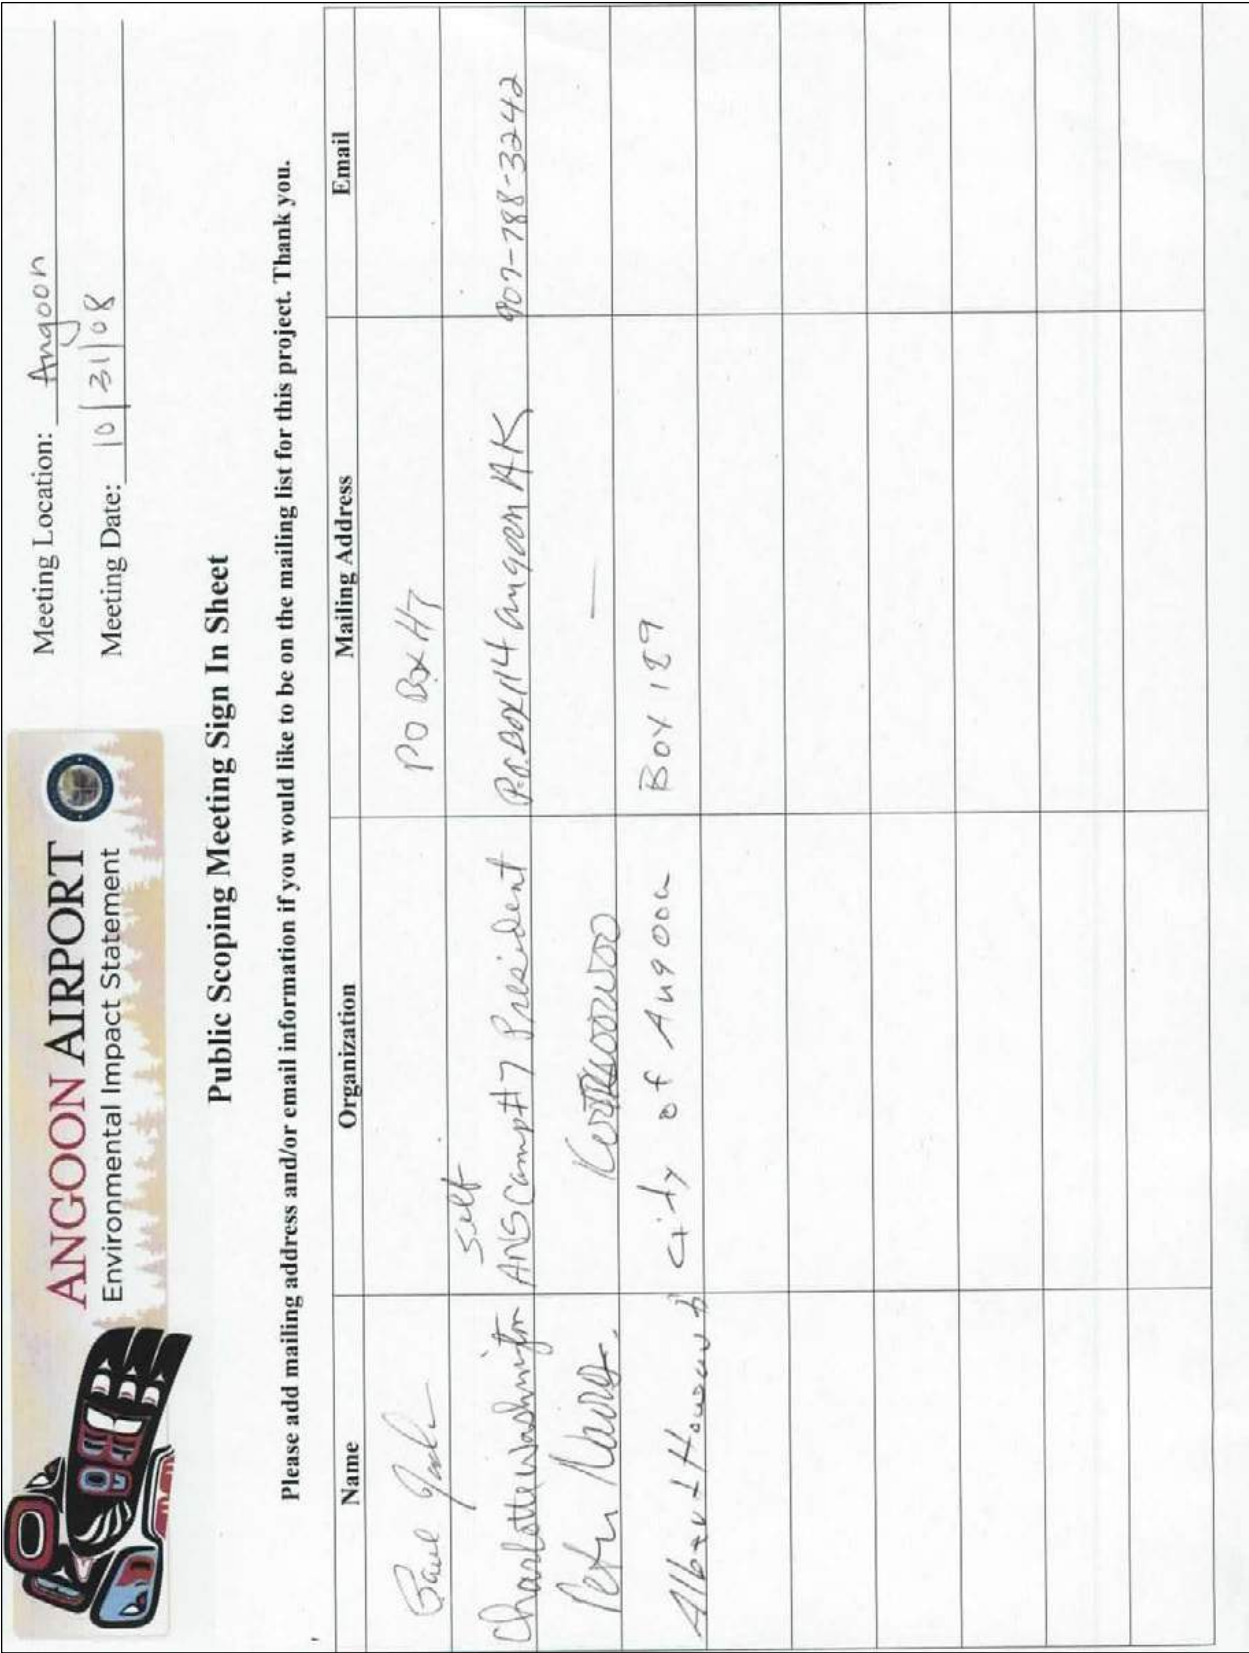 ANGOON AIRPORT
Environmental Impact Statement
Meeting Location: Angoon
Meeting Date: 10/31/08
Public Scoping Meeting Sign In Sheet
Please add mailing address and/or email information if you would like to be on the mailing list for this project. Thank you.
Name Organization Mailing Address Email
Paul PO Box
Self
Charlotte Washington ANS Camp #7 President P.O. Box 114 Angoon AK 907-788-3242
Peter —
Albert Howard City of Angoon Box 189